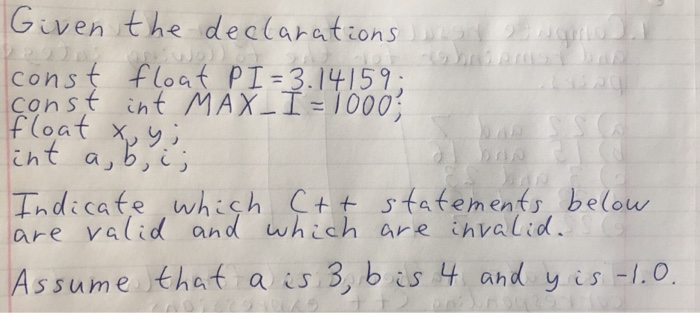 Given the declarations
const float PI = 3.14159;
const int MAX_I = 1000;
float x, y;
int a, b, i;
Indicate which C++ statements below
are valid and which are invalid.
Assume that a is 3, b is 4 and y is -1.0.